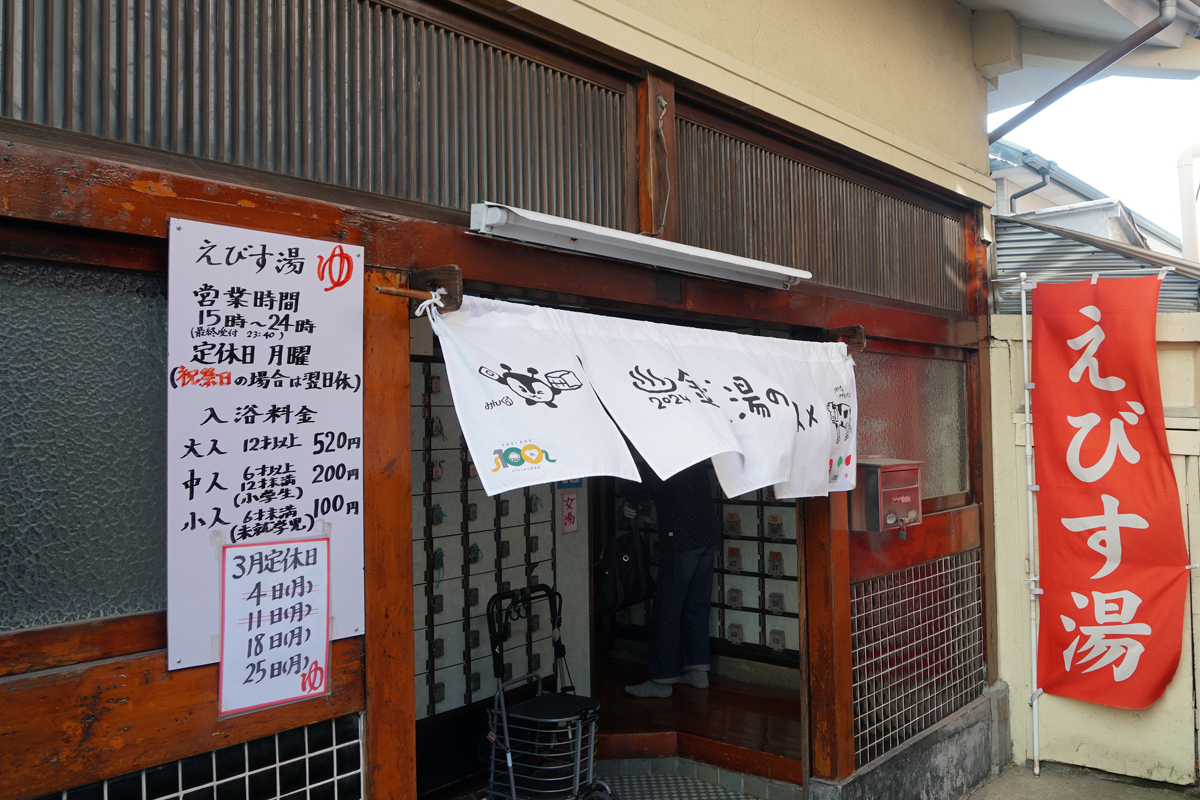 えびす湯 ゆ
営業時間
15時〜24時
(最終受付 23:40)
定休日 月曜
(祝祭日の場合は翌日休)
入浴料金
大人 12才以上 520円
中人 6才以上
12才未満
(小学生) 200円
小人 6才未満
(未就学児) 100円
3月定休日
4日(月)
11日(月)
18日(月)
25日(月)
ゆ
100
2024
湯の
女湯
えびす湯